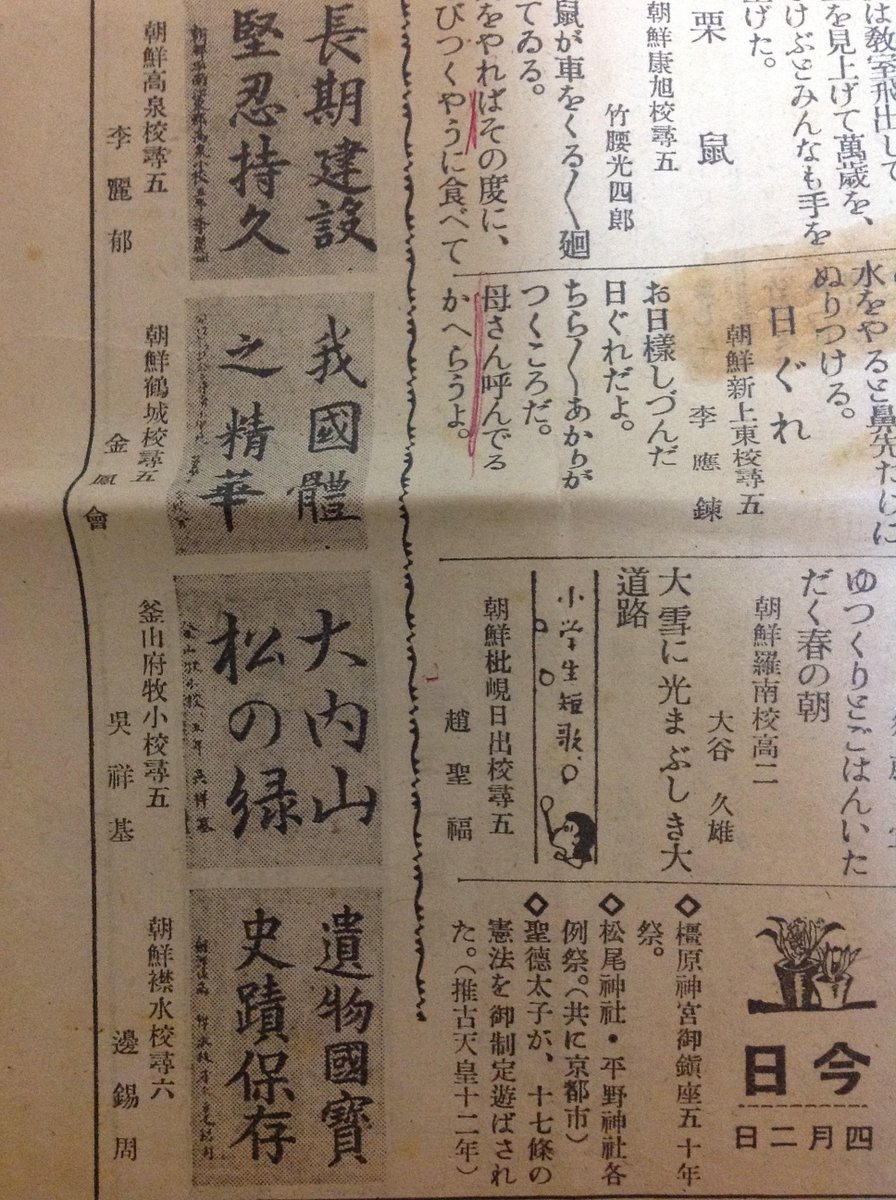 は教室飛出して
を見上げて萬歲を、
けぶとみんなも手を
上げた。
栗鼠
朝鮮康旭校尋五
竹腰光四郎
鼠が車をくる〱廻
てゐる。
をやればその度に、
びつくやうに食べて
水をやると鼻先だけに
ぬりつける。
日ぐれ
朝鮮新上東校尋五
李應鍊
お日樣しづんだ
日ぐれだよ。
ちら〱あかりが
つくころだ。
母さん呼んでる
かへらうよ。
ゆつくりとごはんいた
だく春の朝
朝鮮羅南校高二
大谷久雄
大雪に光まぶしき大
道路
小学生短歌
朝鮮枇峴日出校尋五
趙聖福
今日
四月二日
◇橿原神宮御鎭座五十年
祭。
◇松尾神社・平野神社各
例祭。(共に京都市)
◇聖德太子が、十七條の
憲法を御制定遊ばされ
た。(推古天皇十二年)
長期建設
堅忍持久
朝鮮高泉校尋五
李麗郁
我國體
之精華
朝鮮鶴城校尋五
金鳳會
大内山
松の緑
釜山府牧小校尋五
吳祥基
遺物國寶
史蹟保存
朝鮮襟水校尋六
邊錫周